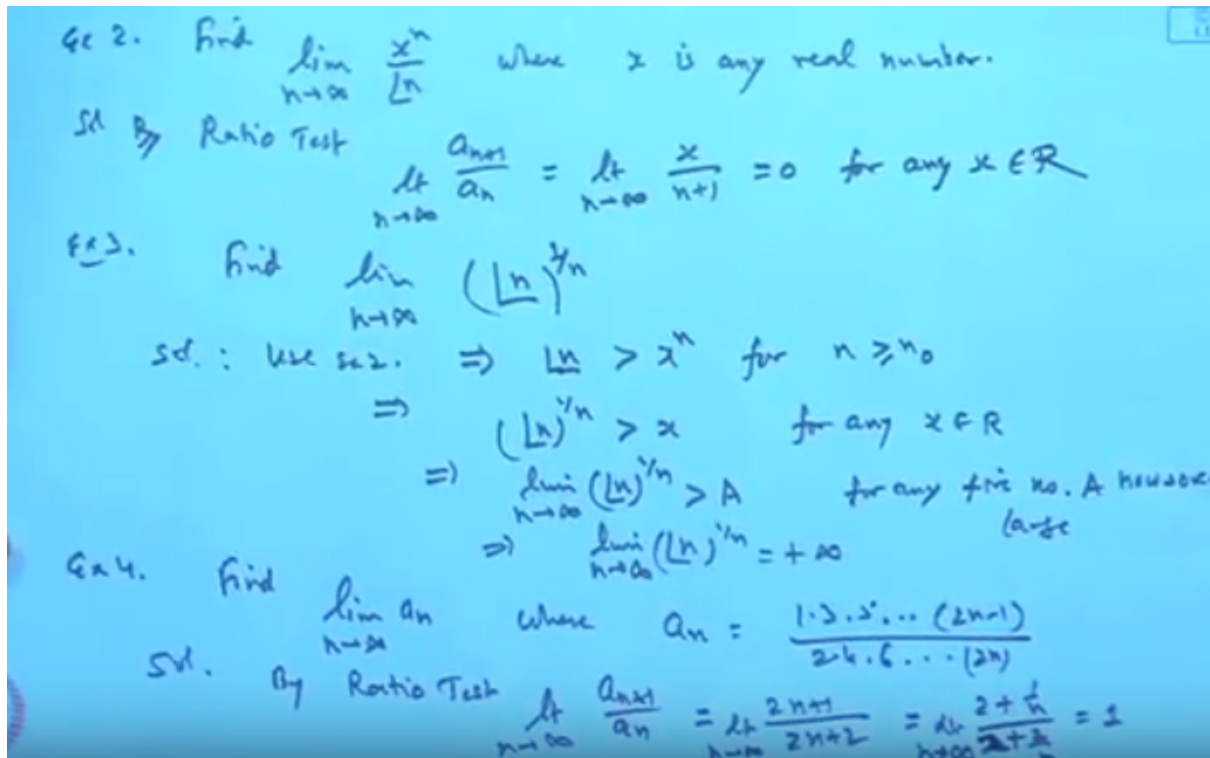 Ex 2. Find lim n→∞ x^n / ⌊n where x is any real number.
Sol By Ratio Test lt n→∞ a_{n+1} / a_n = lt n→∞ x / n+1 = 0 for any x ∈ R
Ex 3. Find lim n→∞ (⌊n)^{1/n}
Sol. : Use Ex 2. ⇒ ⌊n > x^n for n ≥ n_0
⇒ (⌊n)^{1/n} > x for any x ∈ R
⇒ lim n→∞ (⌊n)^{1/n} > A for any +ive no. A howsoe
large
⇒ lim n→∞ (⌊n)^{1/n} = +∞
Ex 4. Find lim n→∞ a_n where a_n = 1.3.5... (2n-1) / 2.4.6... (2n)
Sol. By Ratio Test lt n→∞ a_{n+1} / a_n = lt n→∞ 2n+1 / 2n+2 = lt n→∞ 2+1/n / 2+2/n = 1